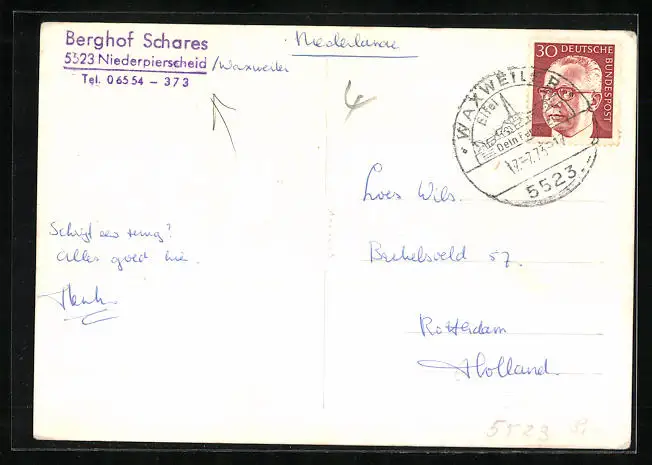 Berghof Schares
5523 Niederpierscheid /Waxweiler
Tel. 06554 - 373
Niederlande
30 DEUTSCHE BUNDESPOST
WAXWEILER
Eifel
Dein
5523
Schrijf eens terug?
Alles goed hie.
Henk
Loes Wils.
57.
Rotterdam
Holland.
5523